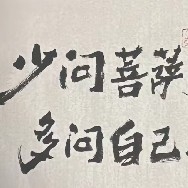 少问菩萨
多问自己